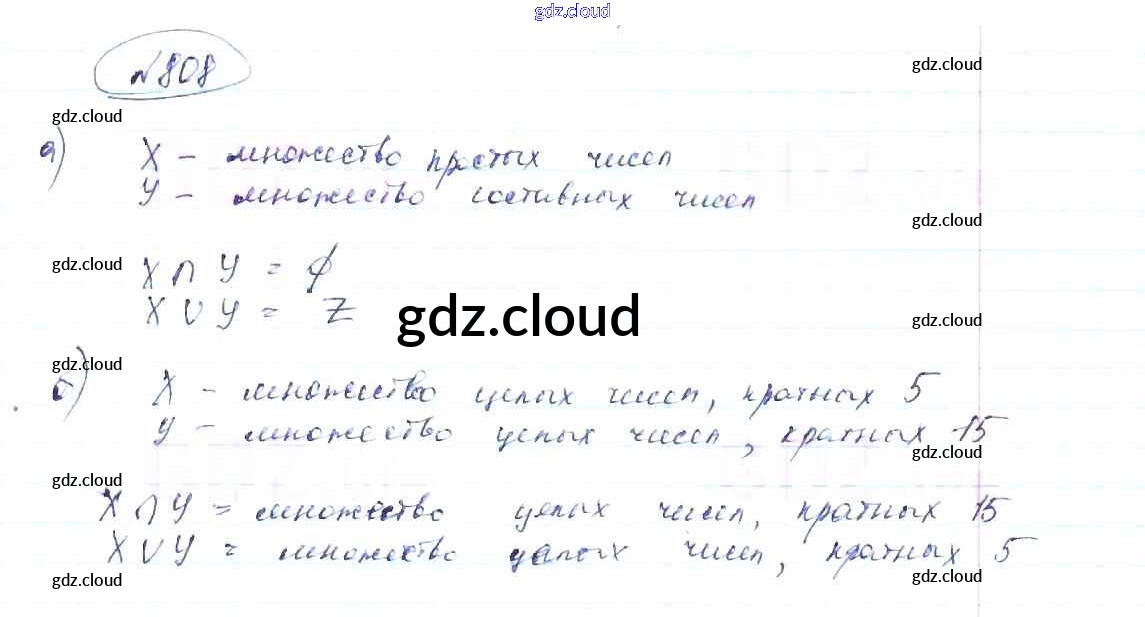 gdz.cloud
№808
gdz.cloud
gdz.cloud
а) X – множество простых чисел
У – множество составных чисел
gdz.cloud
gdz.cloud
X ∩ У = ∅
X ∪ У = Z
gdz.cloud
gdz.cloud
gdz.cloud
б) X – множество целых чисел, кратных 5
У – множество целых чисел, кратных 15
gdz.cloud
gdz.cloud
X ∩ У = множество целых чисел, кратных 15
X ∪ У = множество целых чисел, кратных 5
gdz.cloud
gdz.cloud